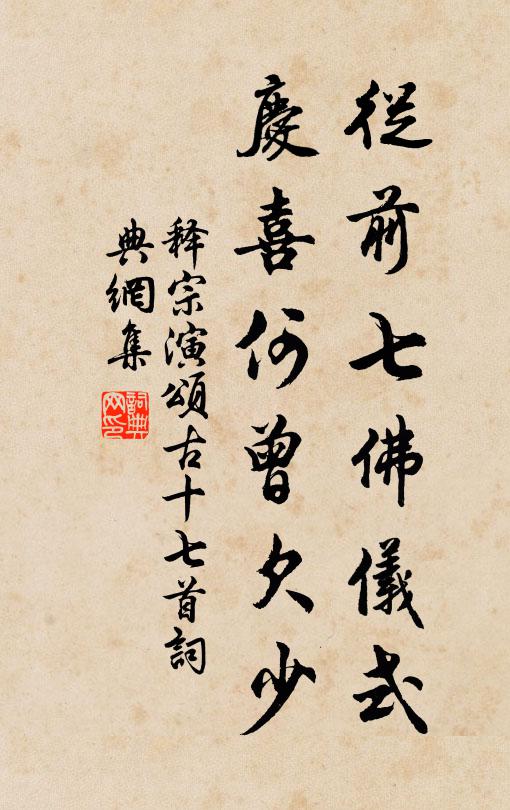 從前七佛儀式
慶喜何曾欠少
释宗演頌古十七首詞
典網集
詞典网印